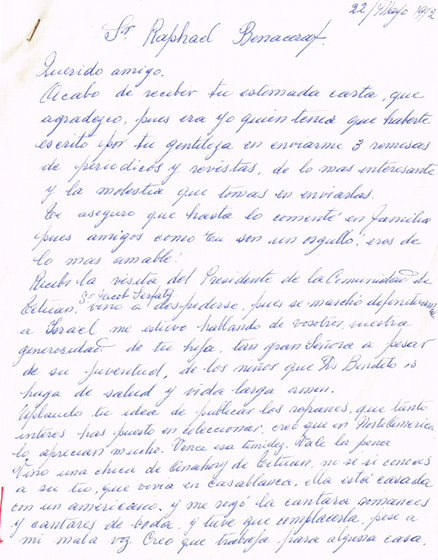 22/Mayo 1972
Sr Raphael Benacerraf.
Querido amigo.
Acabo de recibir tu estimada carta, que
agradezco, pues era yo quien tenia que haberte
escrito por tu gentileza en enviarme 3 remesas
de periodicos y revistas, de lo mas interesante
y la molestia que tomas en enviarlas.
Te aseguro que hasta lo comenté en familia
pues amigos como tu son un orgullo, eres de
lo mas amable!
Recibi la visita del Presidente de la Comunidad de
Tetuan, Sr Jacob Serfaty vino a despederse, pues se marchó definitivam
a Israel, me estuvo hablando de vosotros, vuestra
generosidad. de tu hija, tan gran Señora a pesar
de su juventud, de los niños que Dis Bendito is
haga de salud y vida larga amen.
Aplaudo tu idea de publicar los romances, que tanto
interes has puesto en seleccionar, creo que en Norteamerica
lo aprecian mucho. Vence esa timidez. Vale la pena
Vino una chica de Benahory de Tetuan, no se si conoces
a su tio, que vivia en Casablanca, ella está casada
con un americano, y me rogó la cantara romances
y cantares de boda, y tuve que complacerla, pese a
mi mala voz. Creo que trabaja para alguna casa.